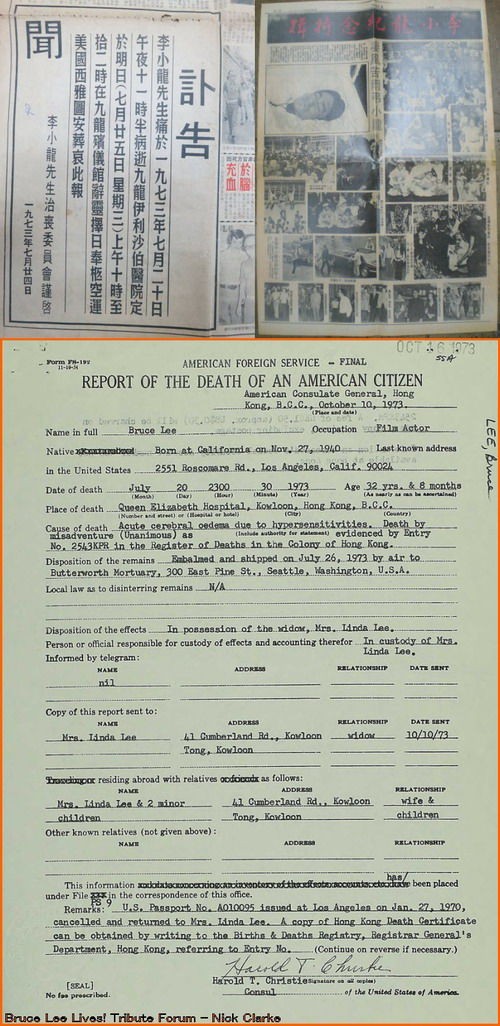 訃
告
聞
李小龍先生痛於一九七三年七月二十日
午夜十一時半病逝九龍伊利沙伯醫院定
於明日(七月廿五日星期三)上午十時至
拾二時在九龍殯儀館辭靈擇日奉柩空運
美國西雅圖安葬哀此報
李小龍先生治喪委員會謹啓
一九七三年七月廿四日
於腦
充血
李小龍紀念特輯
OCT 16 1973
Form FS-192
11-19-54
AMERICAN FOREIGN SERVICE – FINAL
55A
REPORT OF THE DEATH OF AN AMERICAN CITIZEN
American Consulate General, Hong
Kong, B.C.C., October 10, 1973
(Place and date)
LEE, Bruce
Name in full Bruce Lee Occupation Film Actor
Native Born at California on Nov. 27, 1940 Last known address
in the United States 2551 Roscomare Rd., Los Angeles, Calif. 90024
Date of death July 20 2300 30 1973 Age 32 yrs. & 8 months
(Month) (Day) (Hour) (Minute) (Year) (As nearly as can be ascertained)
Place of death Queen Elizabeth Hospital, Kowloon, Hong Kong, B.C.C.
(Number and street) or (Hospital or hotel) (City) (Country)
Cause of death Acute cerebral oedema due to hypersensitivities. Death by
misadventure (Unanimous) as (Include authority for statement) evidenced by Entry
No. 2543KPR in the Register of Deaths in the Colony of Hong Kong.
Disposition of the remains Embalmed and shipped on July 26, 1973 by air to
Butterworth Mortuary, 300 East Pine St., Seattle, Washington, U.S.A.
Local law as to disinterring remains N/A
Disposition of the effects In possession of the widow, Mrs. Linda Lee.
Person or official responsible for custody of effects and accounting therefor In custody of Mrs.
Linda Lee.
Informed by telegram:
NAME ADDRESS RELATIONSHIP DATE SENT
nil
Copy of this report sent to:
NAME ADDRESS RELATIONSHIP DATE SENT
Mrs. Linda Lee 41 Cumberland Rd., Kowloon widow 10/10/73
Tong, Kowloon
Traveling or residing abroad with relatives or friends as follows:
NAME ADDRESS RELATIONSHIP
Mrs. Linda Lee & 2 minor 41 Cumberland Rd., Kowloon wife &
children Tong, Kowloon children
Other known relatives (not given above):
NAME ADDRESS RELATIONSHIP
has/
This information been placed
under File PS 9 in the correspondence of this office.
Remarks: U.S. Passport No. A010095 issued at Los Angeles on Jan. 27, 1970,
cancelled and returned to Mrs. Linda Lee. A copy of Hong Kong Death Certificate
can be obtained by writing to the Births & Deaths Registry, Registrar General's
Department, Hong Kong, referring to Entry No. (Continue on reverse if necessary.)
Harold T. Christie
Harold T. Christie (Signature on all copies)
[SEAL]
No fee prescribed.
Consul of the United States of America.
Bruce Lee Lives! Tribute Forum – Nick Clarke